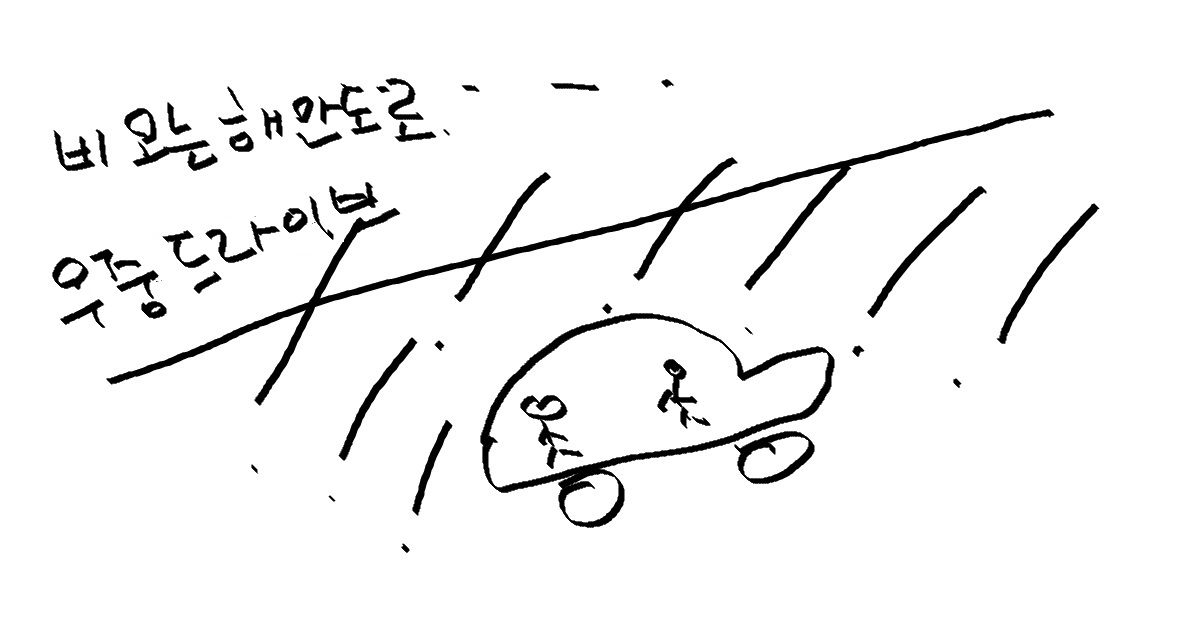 비 오는 해안도로
우중 드라이브